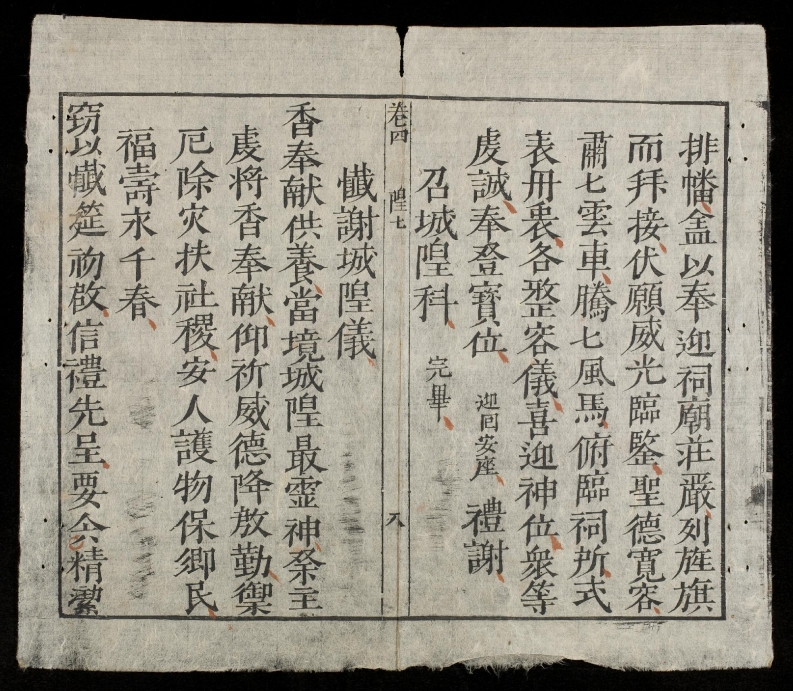 排幡盖以奉迎祠廟莊嚴列旌旗
而拜接伏願威光臨鑒聖德寬容
肅七雲車騰七風馬俯臨祠所式
表冊衷各整容儀喜迎神位衆等
虔誠奉登寶位 迎回安座 禮謝
召城隍科 完畢
卷四 隍七 八
懺謝城隍儀
香奉献供養當境城隍最霊神祭主
虔将香奉献仰祈威德降敖勤禦
厄除灾扶社稷安人護物保鄉民
福壽永千春
窃以懺筵初啟信禮先呈要令精潔